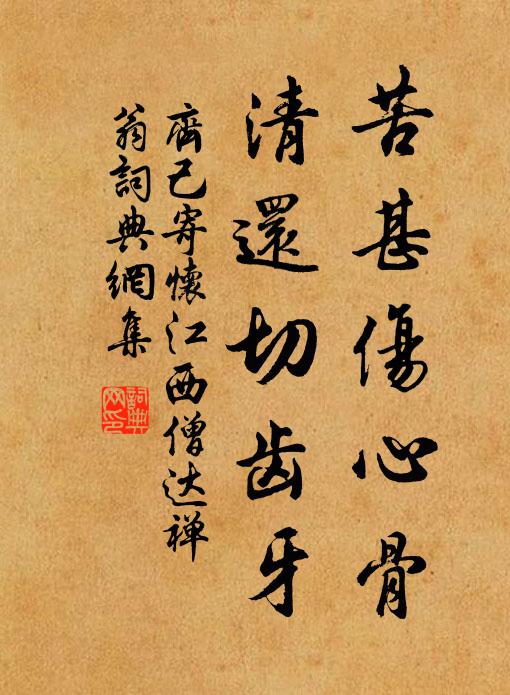 苦甚傷心骨
清還切齿牙
齊己寄懷江西僧达禅
翁詞典網集
詞典网印